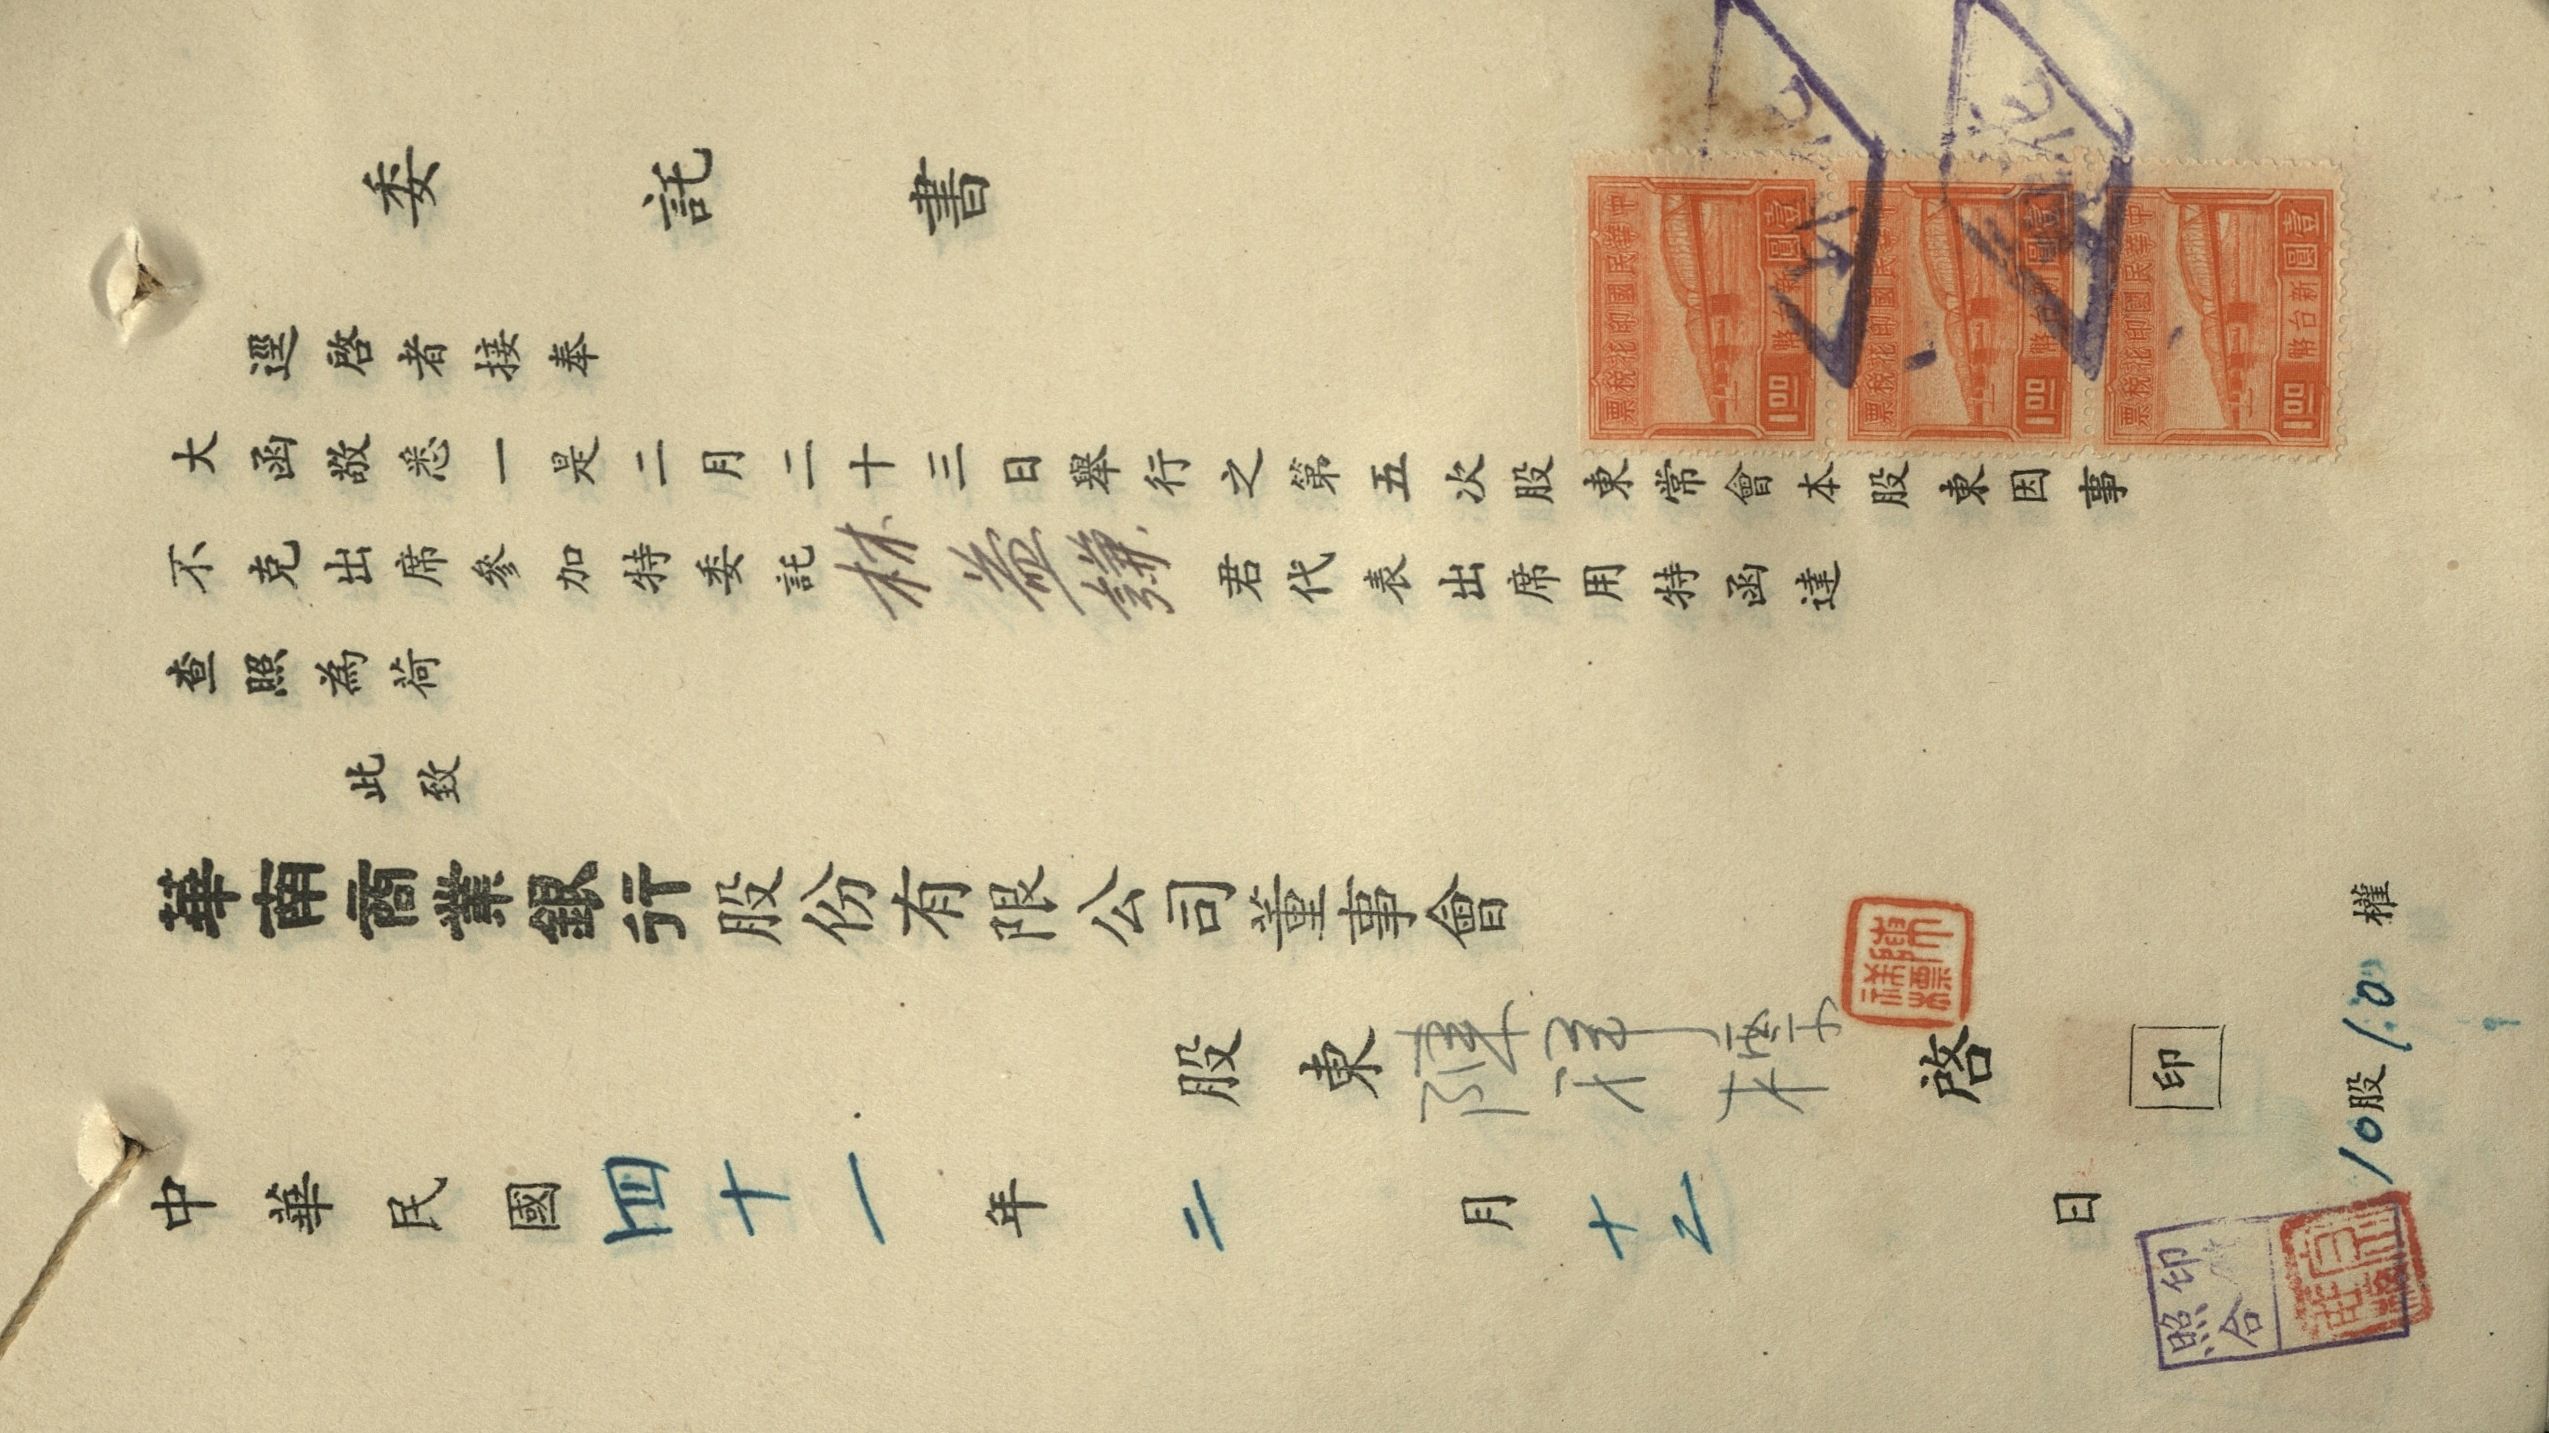 委託書
逕啓者接奉
大函敬悉一是二月二十三日舉行之第五次股東常會本股東因事
不克出席參加特委託林益謙君代表出席用特函達
查照為荷
此致
華南商業銀行股份有限公司董事會
股東陳祥標啓
印
中華民國四十一年二月十乙日
10股10權
照合印
中華民國印花稅票
壹圓
新台幣
1.00
中華民國印花稅票
壹圓
新台幣
1.00
中華民國印花稅票
壹圓
新台幣
1.00